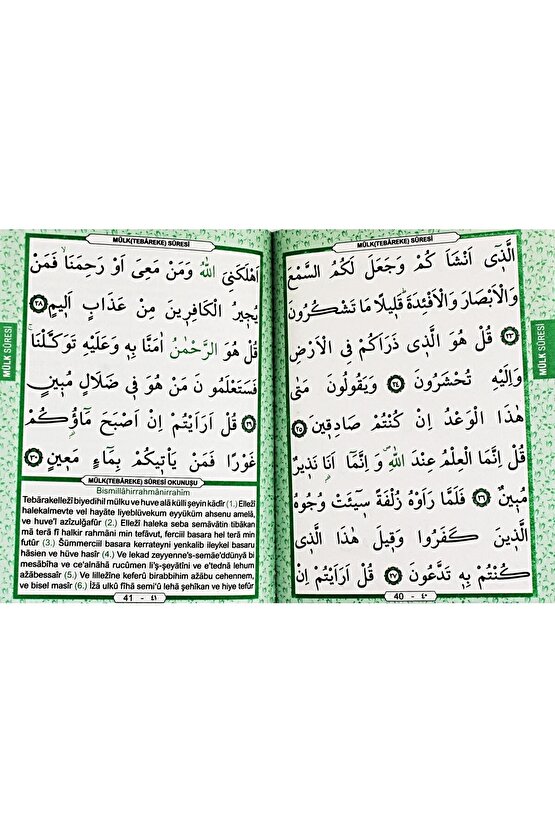 MÜLK(TEBÂREKE) SÛRESİ
اَلَّذ۪ٓي اَنْشَاَ كُمْ وَجَعَلَ لَكُمُ السَّمْعَ
وَالْاَبْصَارَ وَالْاَفْئِدَةَ قَل۪يلًا مَا تَشْكُرُونَ
٢٣ قُلْ هُوَ الَّذ۪ي ذَرَاَكُمْ فِي الْاَرْضِ
وَاِلَيْهِ تُحْشَرُونَ ٢٤ وَيَقُولُونَ مَتٰى
هٰذَا الْوَعْدُ اِنْ كُنْتُمْ صَادِق۪ينَ ٢٥
قُلْ اِنَّمَا الْعِلْمُ عِنْدَ اللّٰهِ وَ اِنَّمَٓا اَنَا نَذ۪يرٌ
مُب۪ينٌ ٢٦ فَلَمَّا رَاَوْهُ زُلْفَةً س۪ٓيـَٔتْ وُجُوهُ
الَّذ۪ينَ كَفَرُوا وَق۪يلَ هٰذَا الَّذ۪ي
كُنْتُمْ بِه۪ تَدَّعُونَ ٢٧ قُلْ اَرَاَيْتُمْ اِنْ
40 - ٤٠
MÜLK SÛRESİ
MÜLK(TEBÂREKE) SÛRESİ
اَهْلَكَنِيَ اللّٰهُ وَمَنْ مَعِيَ اَوْ رَحِمَنَاۙ فَمَنْ
يُج۪يرُ الْكَافِر۪ينَ مِنْ عَذَابٍ اَل۪يمٍ ٢٨
قُلْ هُوَ الرَّحْمٰنُ اٰمَنَّا بِه۪ وَعَلَيْهِ تَوَكَّلْنَاۚ
فَسَتَعْلَمُو نَ مَنْ هُوَ ف۪ي ضَلَالٍ مُب۪ينٍ
٢٩ قُلْ اَرَاَيْتُمْ اِنْ اَصْبَحَ مَٓاؤُ۬كُمْ
غَوْرًا فَمَنْ يَأْت۪يكُمْ بِمَٓاءٍ مَع۪ينٍ ٣٠
MÜLK(TEBÂREKE) SÛRESİ OKUNUŞU
Bismillâhirrahmânirrahîm
Tebârakellezî biyedihil mülku ve huve alâ külli şeyin kâdîr (1.) Ellezî
halekalmevte vel hayâte liyeblüvekum eyyüküm ahsenu amelâ,
ve huve'l azîzulğafûr (2.) Ellezî haleka seba semâvâtin tibâkan
mâ terâ fî halkir rahmâni min tefavut, ferciil basara hel terâ min
futûr (3.) Sümmerciil basara kerrateyni yenkalib ileykel basaru
hâsien ve hüve hasîr (4.) Ve lekad zeyyenne's-semâe'ddünyâ bi
mesâbîha ve ce'alnâhâ rucûmen li'ş-şeyâtîni ve e'tednâ lehum
azâbessaîr (5.) Ve lillezîne keferû birabbihim azâbu cehennem,
ve bisel masîr (6.) İzâ ulkû fîhâ semi'û lehâ şehîkan ve hiye tefûr
41 - ٤١
MÜLK SÛRESİ